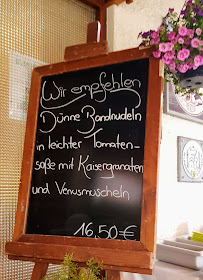 Wir empfehlen
Dünne Bandnudeln
in leichter Tomaten-
soße mit Kaisergranaten
und Venusmuscheln
16,50€